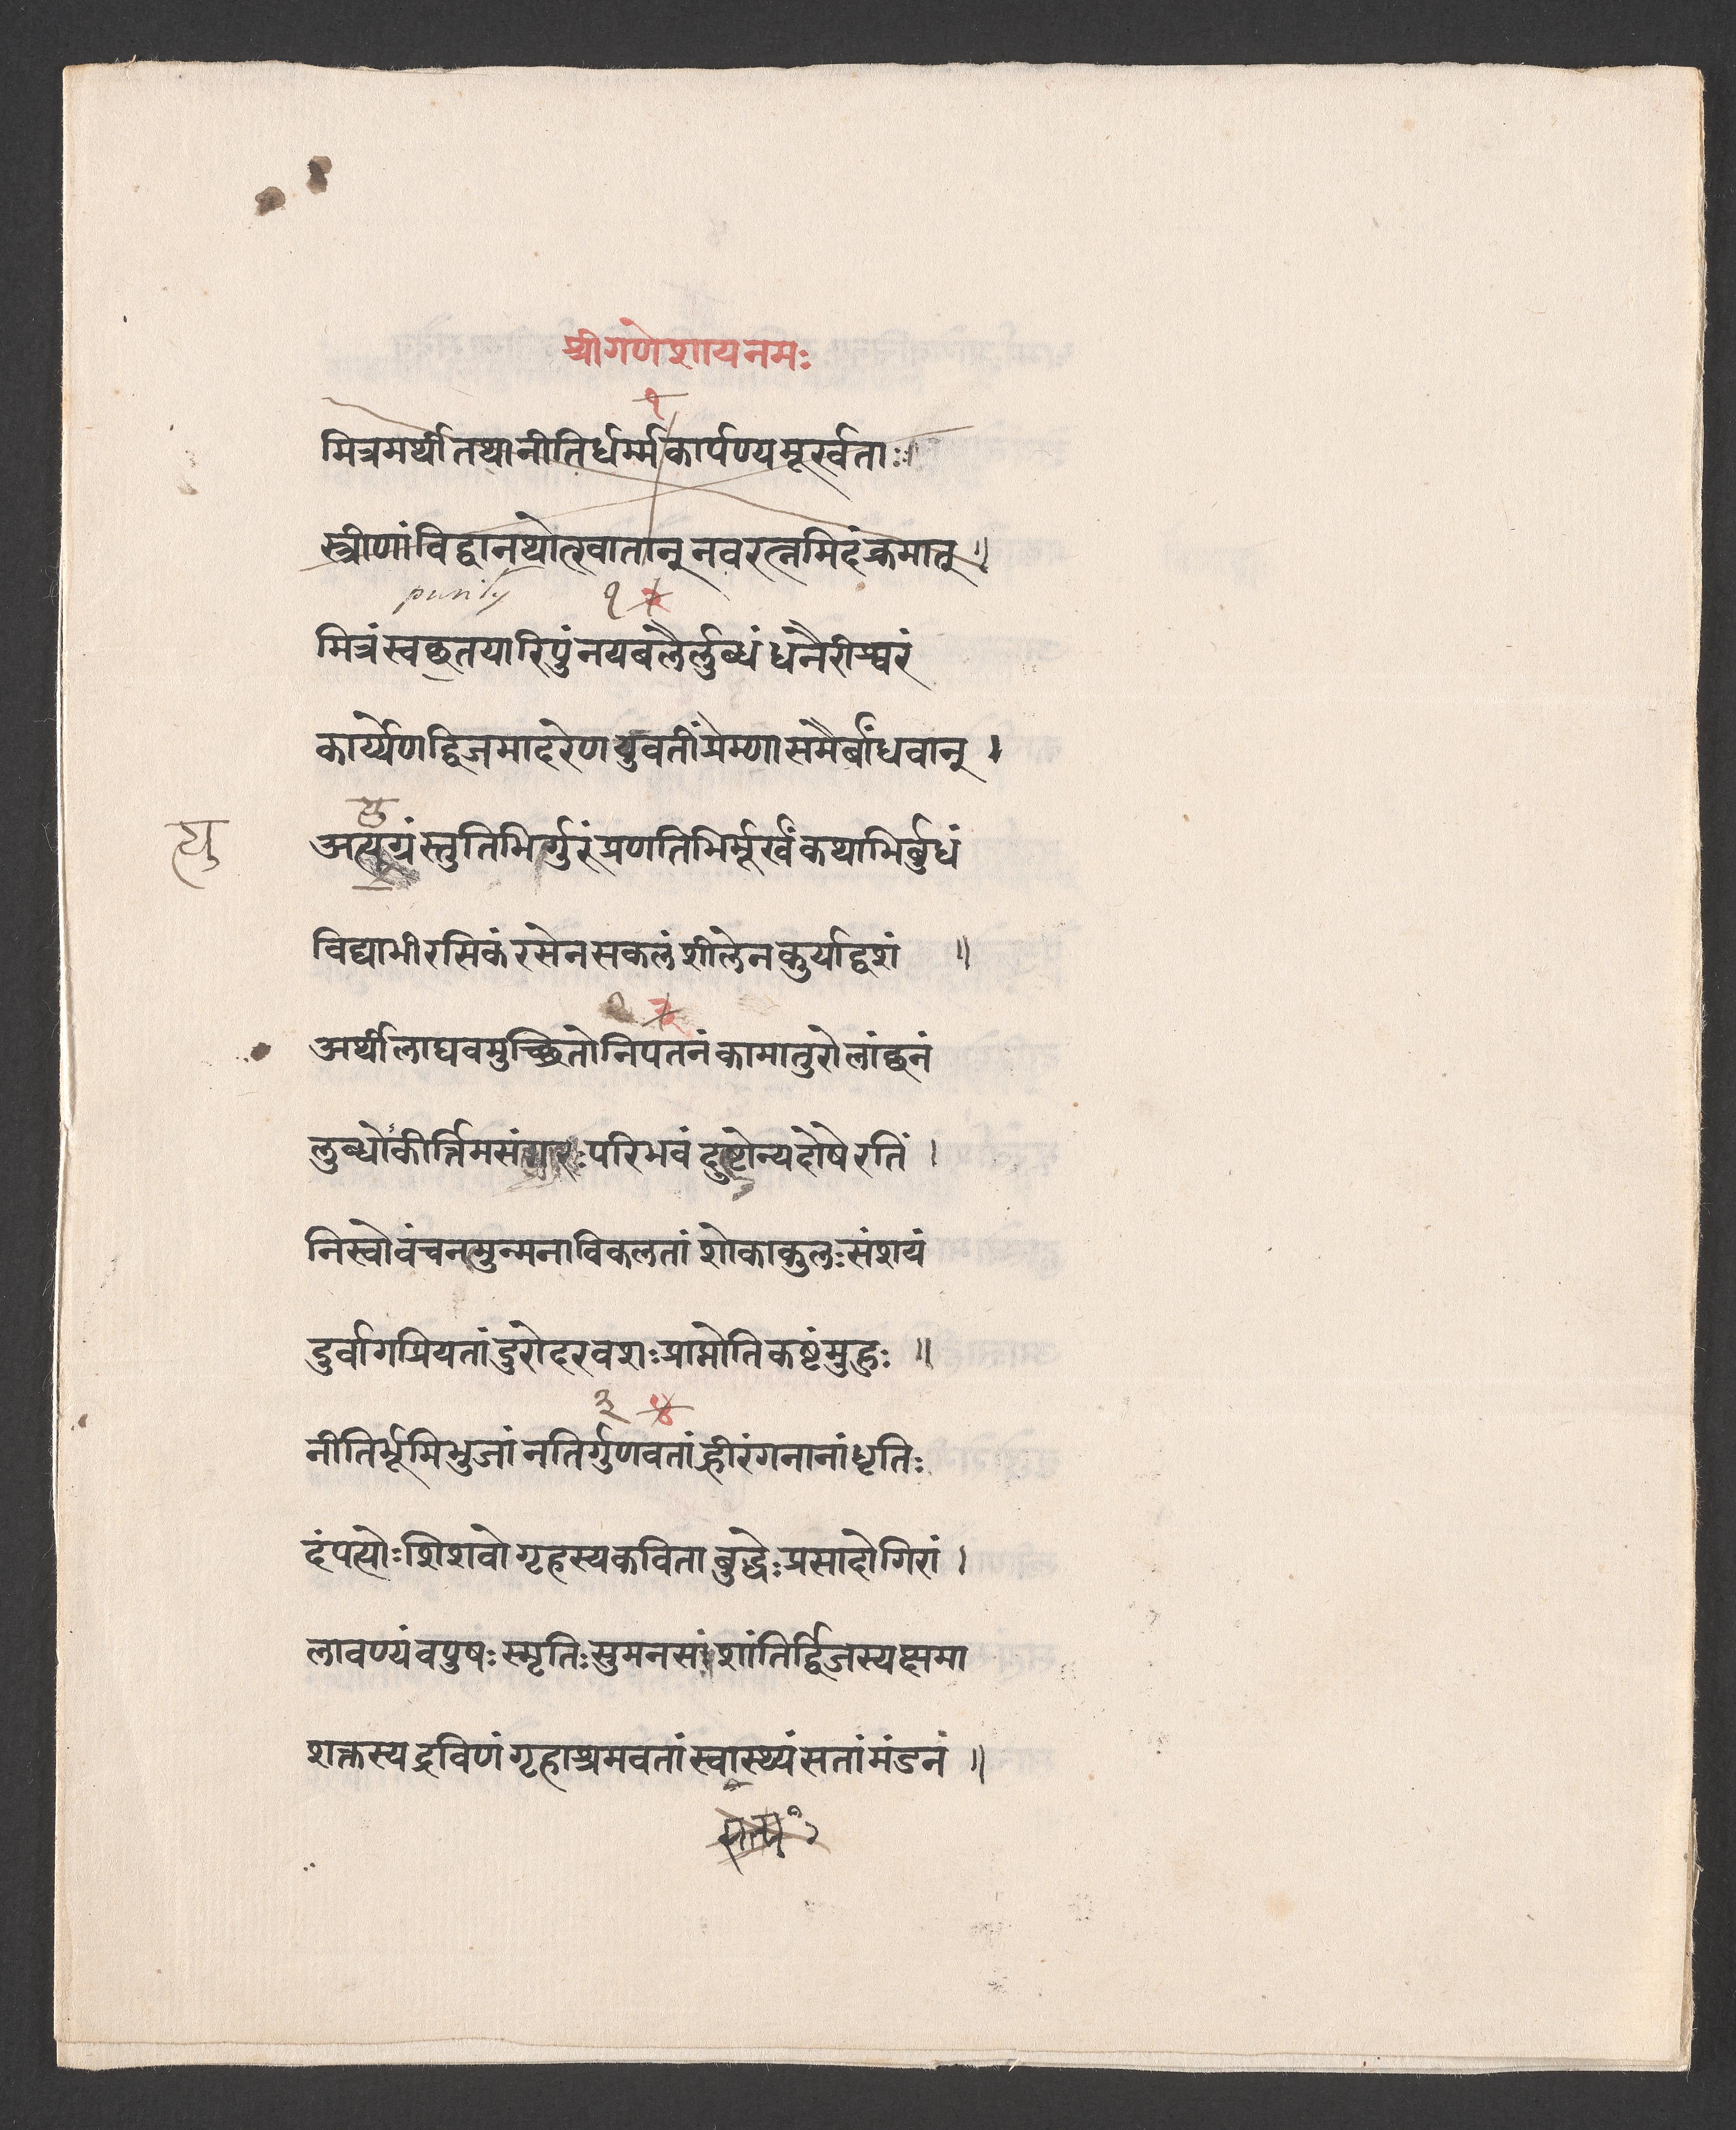 श्रीगणेशायनमः
१
मित्रमर्थीतथानीतिर्धर्म्मकार्पण्यमूर्खताः॥
स्त्रीणांविद्वानथोत्खातान् नवरत्नमिदंक्रमात्॥
purity १ २
मित्रंस्वछतयारिपुंनयबलैर्लुब्धंधनैरीश्वरं
कार्य्येणद्विजमादरेणयुवतींप्रेम्णासमैर्बांधवान्।
त्यु
अत्युग्रंस्तुतिभिर्गुरूंप्रणतिभिर्मूर्खंकथाभिर्बुधं
विद्याभीरसिकंरसेनसकलंशीलेनकुर्याद्वशं ॥
२ ३
अर्थीलाघवमुच्छ्रितोनिपतनंकामातुरोलांछनं
लुब्धोकीर्त्तिमसंगरःपरिभवंदुष्टोन्यदोषेरतिं।
निस्वोवंचनमुन्मनाविकलतांशोकाकुलःसंशयं
दुर्वागप्रियतांदुरोदरवशःप्राप्नोतिकष्टंमुहुः॥
३ ४
नीतिर्भूमिभुजांनतिर्गुणवतांह्रीरंगनानांधृतिः
दंपत्योःशिशवोगृहस्यकविताबुद्धेःप्रसादोगिरां।
लावण्यंवपुषःस्मृतिःसुमनसांशांतिर्द्विजस्यक्षमा
शक्तस्यद्रविणंगृहाश्रमवतांस्वास्थ्यंसतांमंडनं॥